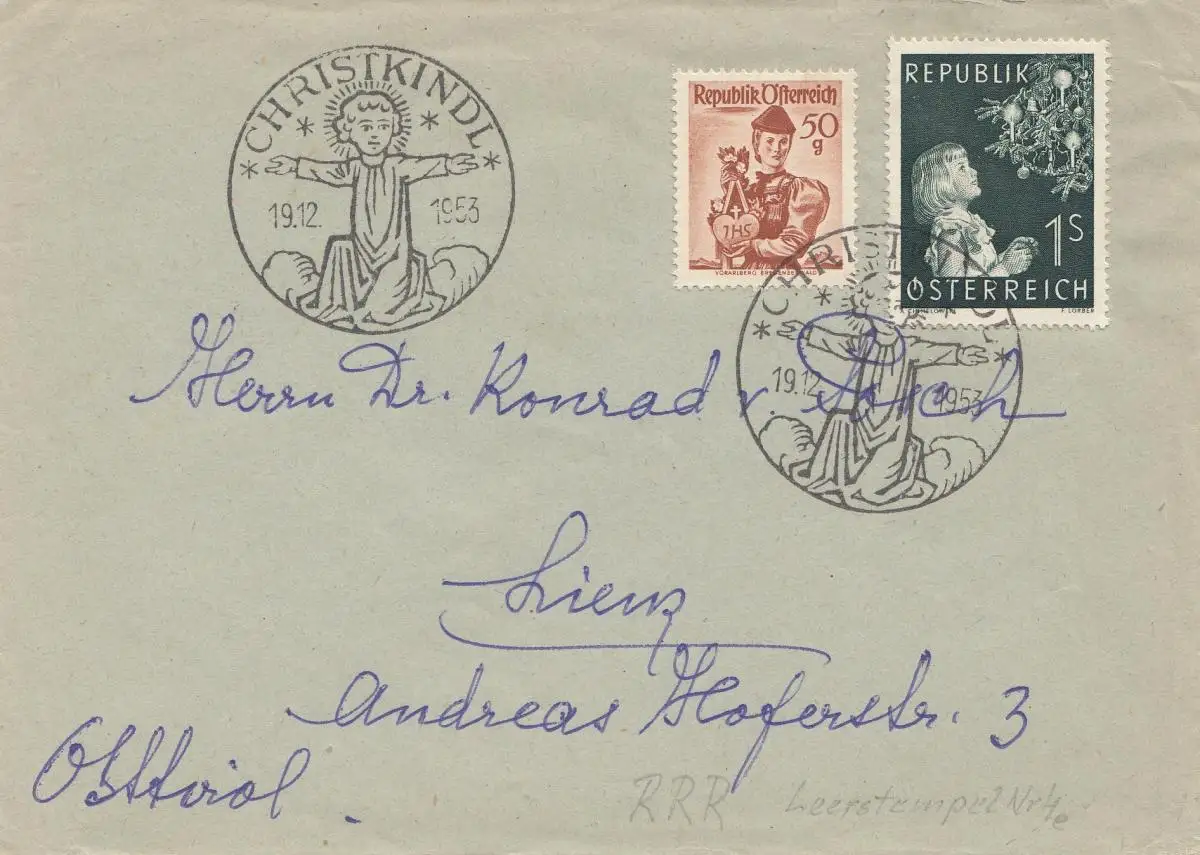 CHRISTKINDL
19.12. 1953
Republik Österreich
50 g
JHS
VORARLBERG BREGENZERWALD
REPUBLIK
1S
ÖSTERREICH
F. LORBER
CHRISTKINDL
19.12. 1953
Herrn Dr. Konrad v.
Lienz
Andreas Hoferstr. 3
Osttirol
RRR Leerstempel Nr 4e